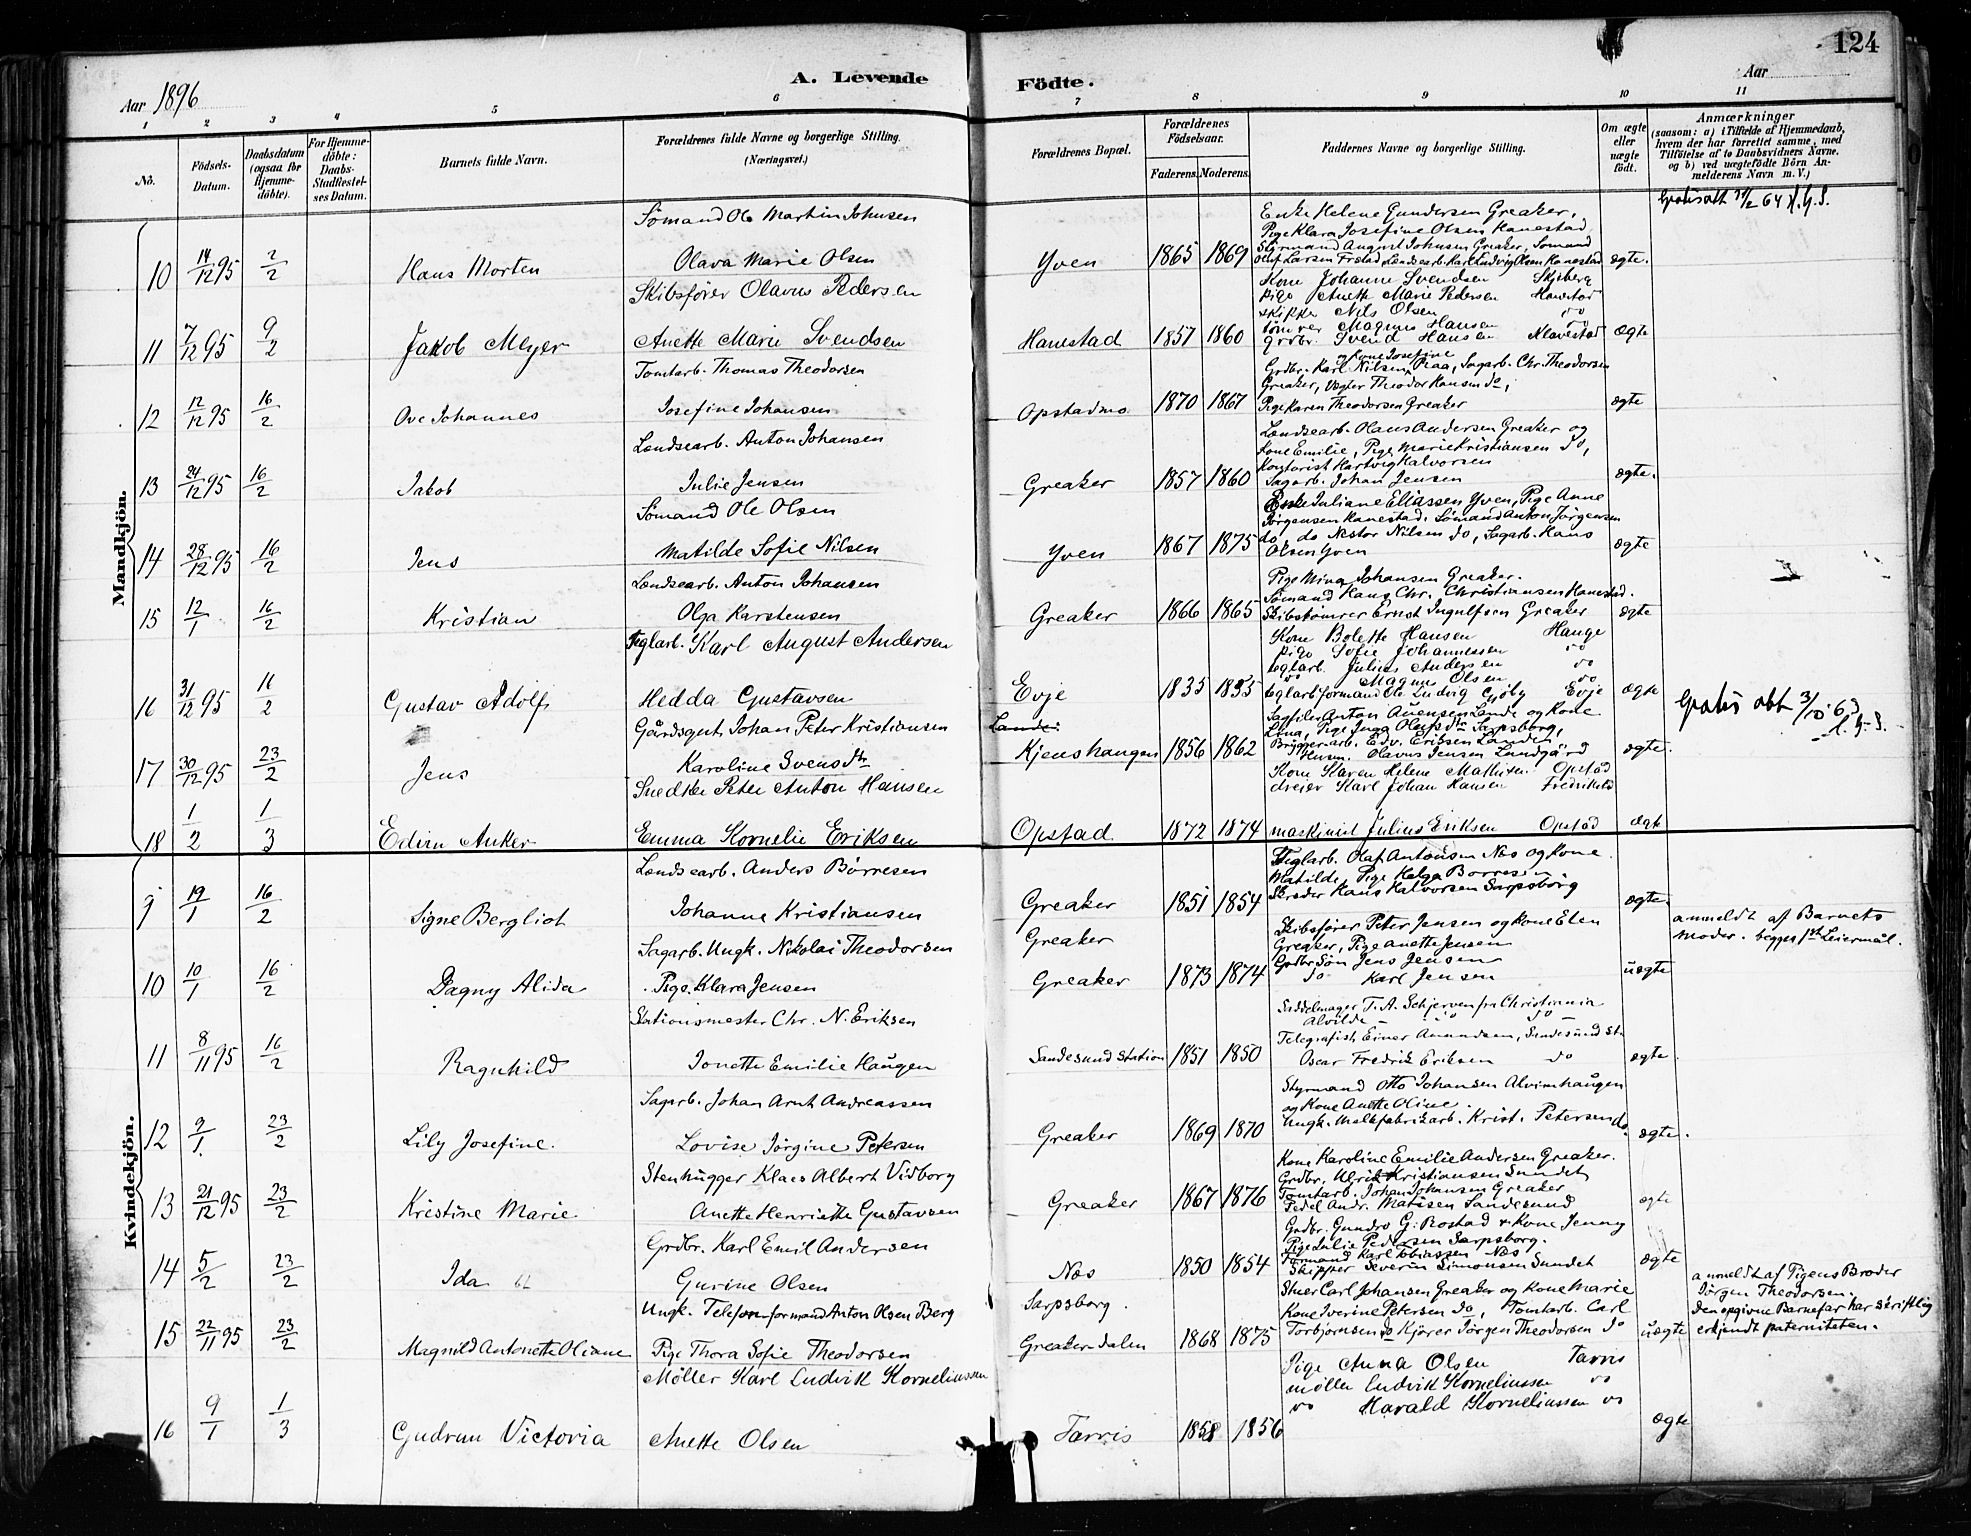 124
Aar 1896
A. Levende Födte.
Aar
1 2 3 4 5 6 7 8 9 10 11
No.
Födsels-Datum.
Daabsdatum (ogsaa for Hjemme-döbte).
For Hjemme-döbte: Daabs-Stadfæstel-ses Datum.
Barnets fulde Navn.
Forældrenes fulde Navne og borgerlige Stilling. (Næringsvei.)
Forældrenes Bopæl.
Forældrenes Födselsaar.
Faderens. Moderens.
Faddernes Navne og borgerlige Stilling.
Om ægte eller uægte födt.
Anmærkninger
(saasom: a) i Tilfælde af Hjemmedaab, hvem der har forrettet samme, med Tilföielse af to Daabsvidners Navne, og b) ved uægtefödte Börn Anmelderens Navn m. V.)
Mandkjön.
10 14/12 95 2/2 Hans Morten
Sömand Ole Martin Johnsen
Olava Marie Olsen
Yven 1865 1869
Enke Helene Gundersen Greaker,
Pige Klara Josefine Olsen Hanestad,
Styrmand August Johnsen Greaker, Sömand
Olaf Larsen Frstad, Landsearb. Karl Ludvig Olsen Hanestad
ægte.
11 7/12 95 9/2 Jakob Meyer
Skibsförer Olavus Pedersen
Anette Marie Svendsen
Hanestad 1857 1860
Kone Johanne Svendsen Skjeberg
pige Anette Marie Pedersen Hanestad
skipper Nils Olsen do
tömrer Magnus Hansen do
grdbr. Svend Hansen Klavestad
ægte
12 12/12 95 16/2 Ove Johannes
Tomtarb. Thomas Theodorsen
Josefine Johansen
Opstadmo 1870 1867
og Kone Josefine
Grdbr. Karl Nilsen Piaa, Sagarb. Chr. Theodorsen
Greaker, Vægter Theodor Hansen do,
Pige Karen Theodorsen Greaker
ægte
13 24/12 95 16/2 Jakob
Lændsearb. Anton Johansen
Julie Jensen
Greaker 1857 1860
Lændsearb. Olaus Andersen Greaker og
Kone Emilie, Pige Marie Kristiansen do,
Kontorist Hartvig Halvorsen
Sagarb. Johan Jensen
ægte.
14 28/12 95 16/2 Jens
Sömand Ole Olsen
Matilde Sofie Nilsen
Yven 1867 1875
Enke Juliane Eliassen Yven, Pige Anne
Jörgensen Hanestad. Sömand Anton Jörgensen
do, do Nestor Nilsen do, Sagarb. Hans
Olsen Yven
ægte
15 12/1 16/2 Kristian
Lændsearb. Anton Johansen
Olga Karstensen
Greaker 1866 1865
Pige Mina Johansen Greaker.
Sömand Hans Chr. Christiansen Hanestad.
Skibstömrer Ernst Ingulfsen Greaker
ægte
16 31/12 95 16/2 Gustav Adolf
Teglarb. Karl August Andersen
Hedda Gustavsen
Evje 1835 1855
Kone Bolette Hansen Hauge
pige Sofie Johannessen do
teglarb. Julius Andersen do
do Magnus Olsen do
teglarbformand Ole Ludvig Gjöby Evje
ægte
Gratis att 3/10 63
17 30/12 95 23/2 Jens
Gårdsgut Johan Peter Kristiansen
Karoline Svensdtr
Lande
Kjenshaugen 1856 1862
Sagfiler Anton Auensen Lande og Kone
Lina, Pige Inga Olufsdtr Sarpsborg,
Bryggerarb. Edv. Eriksen Landes
Olavus Jensen Landgård
ægte.
18 1/2 1/3 Edvin Anker
Snedker Peter Anton Hansen
Emma Kornelie Eriksen
Opstad 1872 1874
Kone Karen Helene Mathisen Opstad
dreier Karl Johan Hansen Fredrikstad
maskinist Julius Eriksen Opstad
ægte
Kvindekjön.
9 19/1 16/2 Signe Bergliot
Lændsearb. Anders Börresen
Johanne Kristiansen
Greaker 1851 1854
Teglarb. Olaf Antonsen Næs og Kone
Matilde, Pige Helga Borresen
Skræder Hans Halvorsen Sarpsborg
ægte.
10 10/1 16/2 Dagny Alida
Sagarb. Ungk. Nikolai Theodorsen
Pige Klara Jensen
Greaker
Greaker 1873 1874
Skibsförer Peter Jensen og Kone Elen
Greaker, Pige Anette Jensen
Grdbr. Sön Jens Jensen
do Karl Jensen
uægte
anmeldt af Barnets
Moder. begges 1ste Leiermål.
11 8/11 95 16/2 Ragnhild
Stationsmester Chr. N. Eriksen
Jonette Emilie Haugen
Sandesund Station 1851 1850
Saddelmager T. A. Schjerven fra Christiania
Alvilde do
Telegrafist Einer Amundsen, Sandesund St.
Oscar Fredrik Eriksen do
ægte.
12 9/1 23/2 Lily Josefine.
Sagarb. Johan Arnt Andreassen
Lovise Jörgine Petersen
Greaker 1869 1870
Styrmand Otto Johansen Alvimhaugen
og Kone Anette Oline.
Ungk. Melkfabrikarb. Krist. Petersen do.
ægte.
13 21/12 95 23/2 Kristine Marie
Stenhugger Klaes Albert Vidborg
Anette Henriette Gustavsen
Greaker 1867 1876
Kone Karoline Emilie Andersen Greaker.
Grdbr. Ulrik Kristiansen Sundet
Tomtarb. Johan Johansen Greaker
Pedel Andr. Matisen Sandesund
ægte
14 5/2 23/2 Ida
Grdbr. Karl Emil Andersen
Gurine Olsen
Næs 1850 1854
Grdbr. Gundro G. Rostad & Kone Jenny
Pige Julie Pedersen Sarpsborg.
Formand Karl Tobiassen Næs
Skipper Severin Simonsen Sundet
ægte
15 22/11 95 23/2 Magnild Antonette Oliane
Ungk. Telefonformand Anton Olsen Berg
Pige Thora Sofie Theodorsen
Sarpsborg.
Greaker-dalen 1868 1875
Stuer Carl Johansen Greaker og Kone Marie
Kone Iverine Petersen do, Tomtarb. Carl
Torbjornsen do Kjörer Jörgen Theodorsen do
uægte
anmeldt af Pigens Broder
Jörgen Theodorsen.
Den opgivne Barnefar har skriftlig
erkjendt paterniteten.
16 9/1 1/3 Gudrun Victoria
Möller Karl Ludvik Korneliussen
Anette Olsen
Tarris 1858 1856
Pige Anna Olsen Tarris
möller Ludvik Korneliussen do
do Harald Korneliussen do
ægte